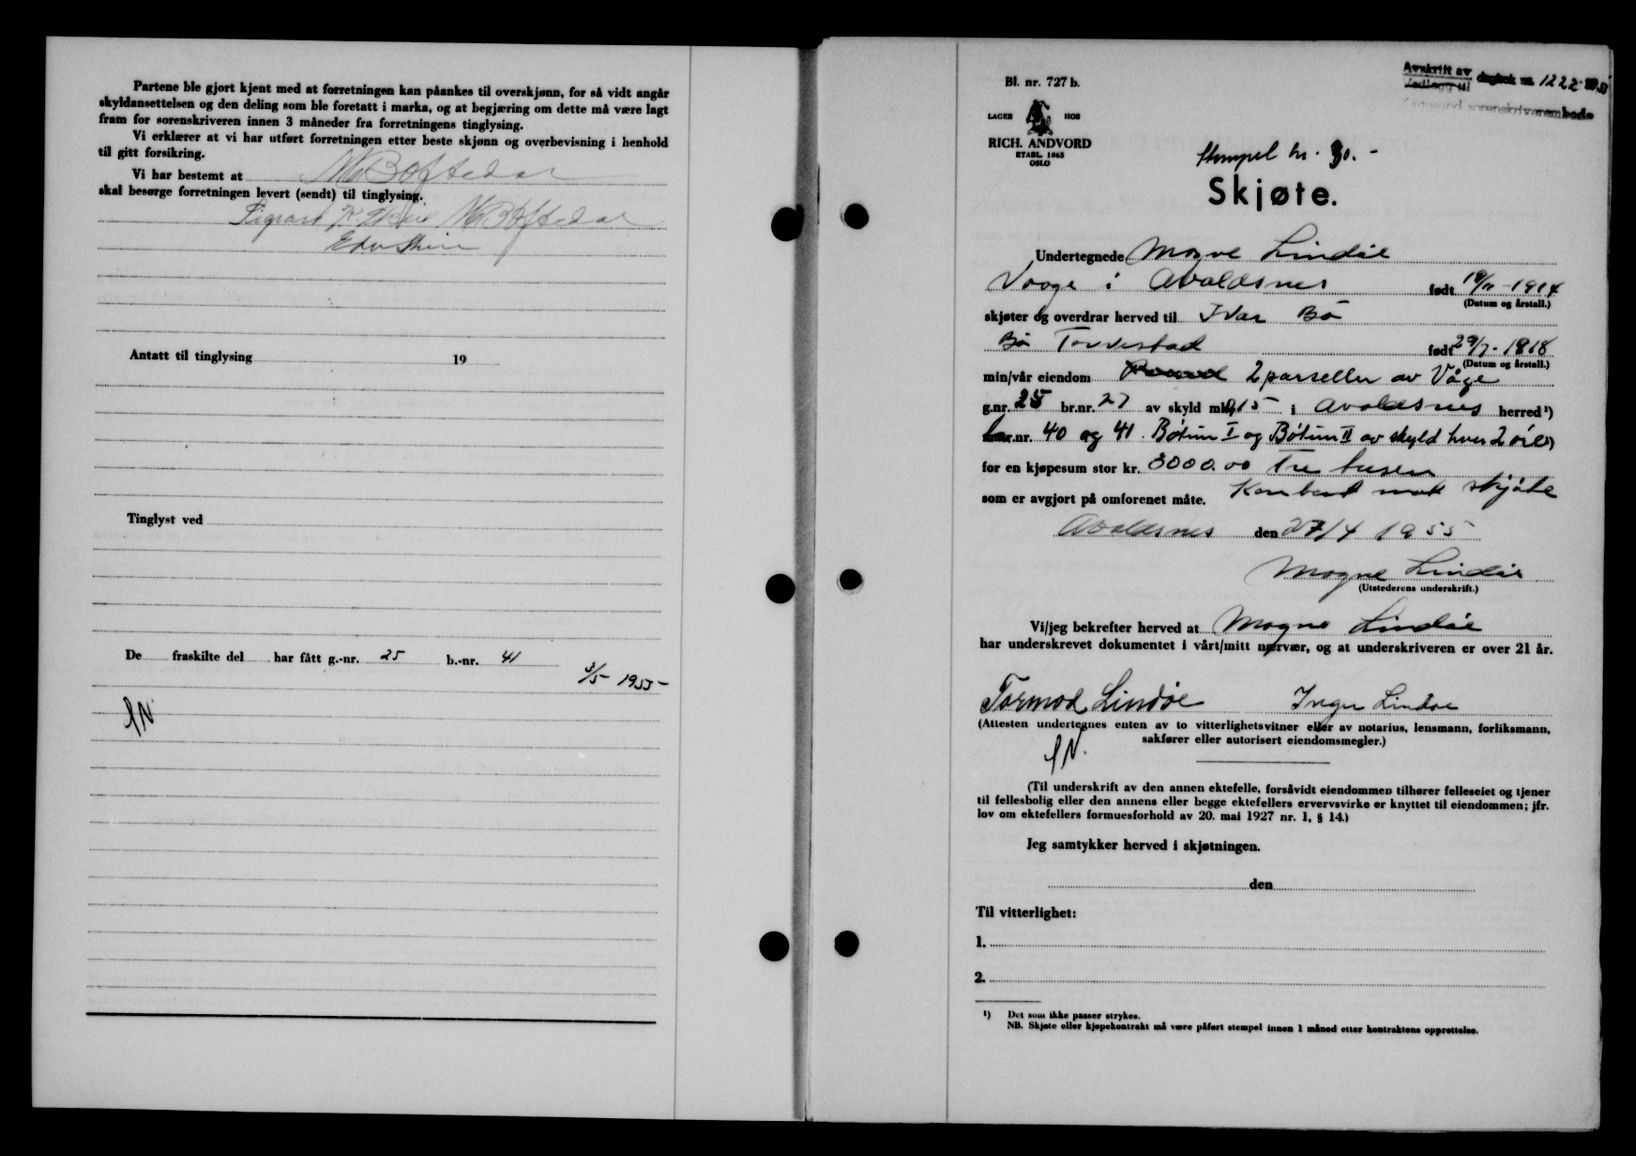 Partene ble gjort kjent med at forretningen kan påankes til overskjønn, for så vidt angår
skyldansettelsen og den deling som ble foretatt i marka, og at begjæring om dette må være lagt
fram for sorenskriveren innen 3 måneder fra forretningens tinglysing.
Vi erklærer at vi har utført forretningen etter beste skjønn og overbevisning i henhold
til gitt forsikring.
Vi har bestemt at
skal besørge forretningen levert (sendt) til tinglysing.
Antatt til tinglysing 19
Tinglyst ved
De fraskilte del har fått g.-nr. 25 b.-nr. 41
3/5 1955
Bl. nr. 727 b.
LAGER HOS
RICH. ANDVORD
ETABL. 1865
OSLO
Avskrift av dagbok nr. 1222
sorenskriverembede
Stempel kr. 30.-
Skjøte.
Undertegnede Mogne Lindøe
Vaage i Avaldsnes født 1914
(Datum og årstall.)
skjøter og overdrar herved til Ivar Bø
Bø Torvestad født 29/7-1918
(Datum og årstall.)
min/vår eiendom 2 parseller av Våge
g.nr. 25 br.nr. 27 av skyld mk. i Avaldsnes herred ¹)
nr. 40 og 41. Bøtun I og Bøtun II av skyld hver 2 øre
for en kjøpesum stor kr. 3000.00 Tre tusen
som er avgjort på omforenet måte. Kontant mot skjøte
Avaldsnes den 27/4 1955
Mogne Lindøe
(Utstederens underskrift.)
Vi/jeg bekrefter herved at Mogne Lindøe
har underskrevet dokumentet i vårt/mitt nærvær, og at underskriveren er over 21 år.
Tormod Lindøe Inger Lindøe
(Attesten undertegnes enten av to vitterlighetsvitner eller av notarius, lensmann, forliksmann,
sakfører eller autorisert eiendomsmegler.)
(Til underskrift av den annen ektefelle, forsåvidt eiendommen tilhører felleseiet og tjener
til fellesbolig eller den annens eller begge ektefellers ervervsvirke er knyttet til eiendommen; jfr.
lov om ektefellers formuesforhold av 20. mai 1927 nr. 1, § 14.)
Jeg samtykker herved i skjøtningen.
den
Til vitterlighet:
1.
2.
¹) Det som ikke passer strykes.
NB. Skjøte eller kjøpekontrakt må være påført stempel innen 1 måned etter kontraktens opprettelse.